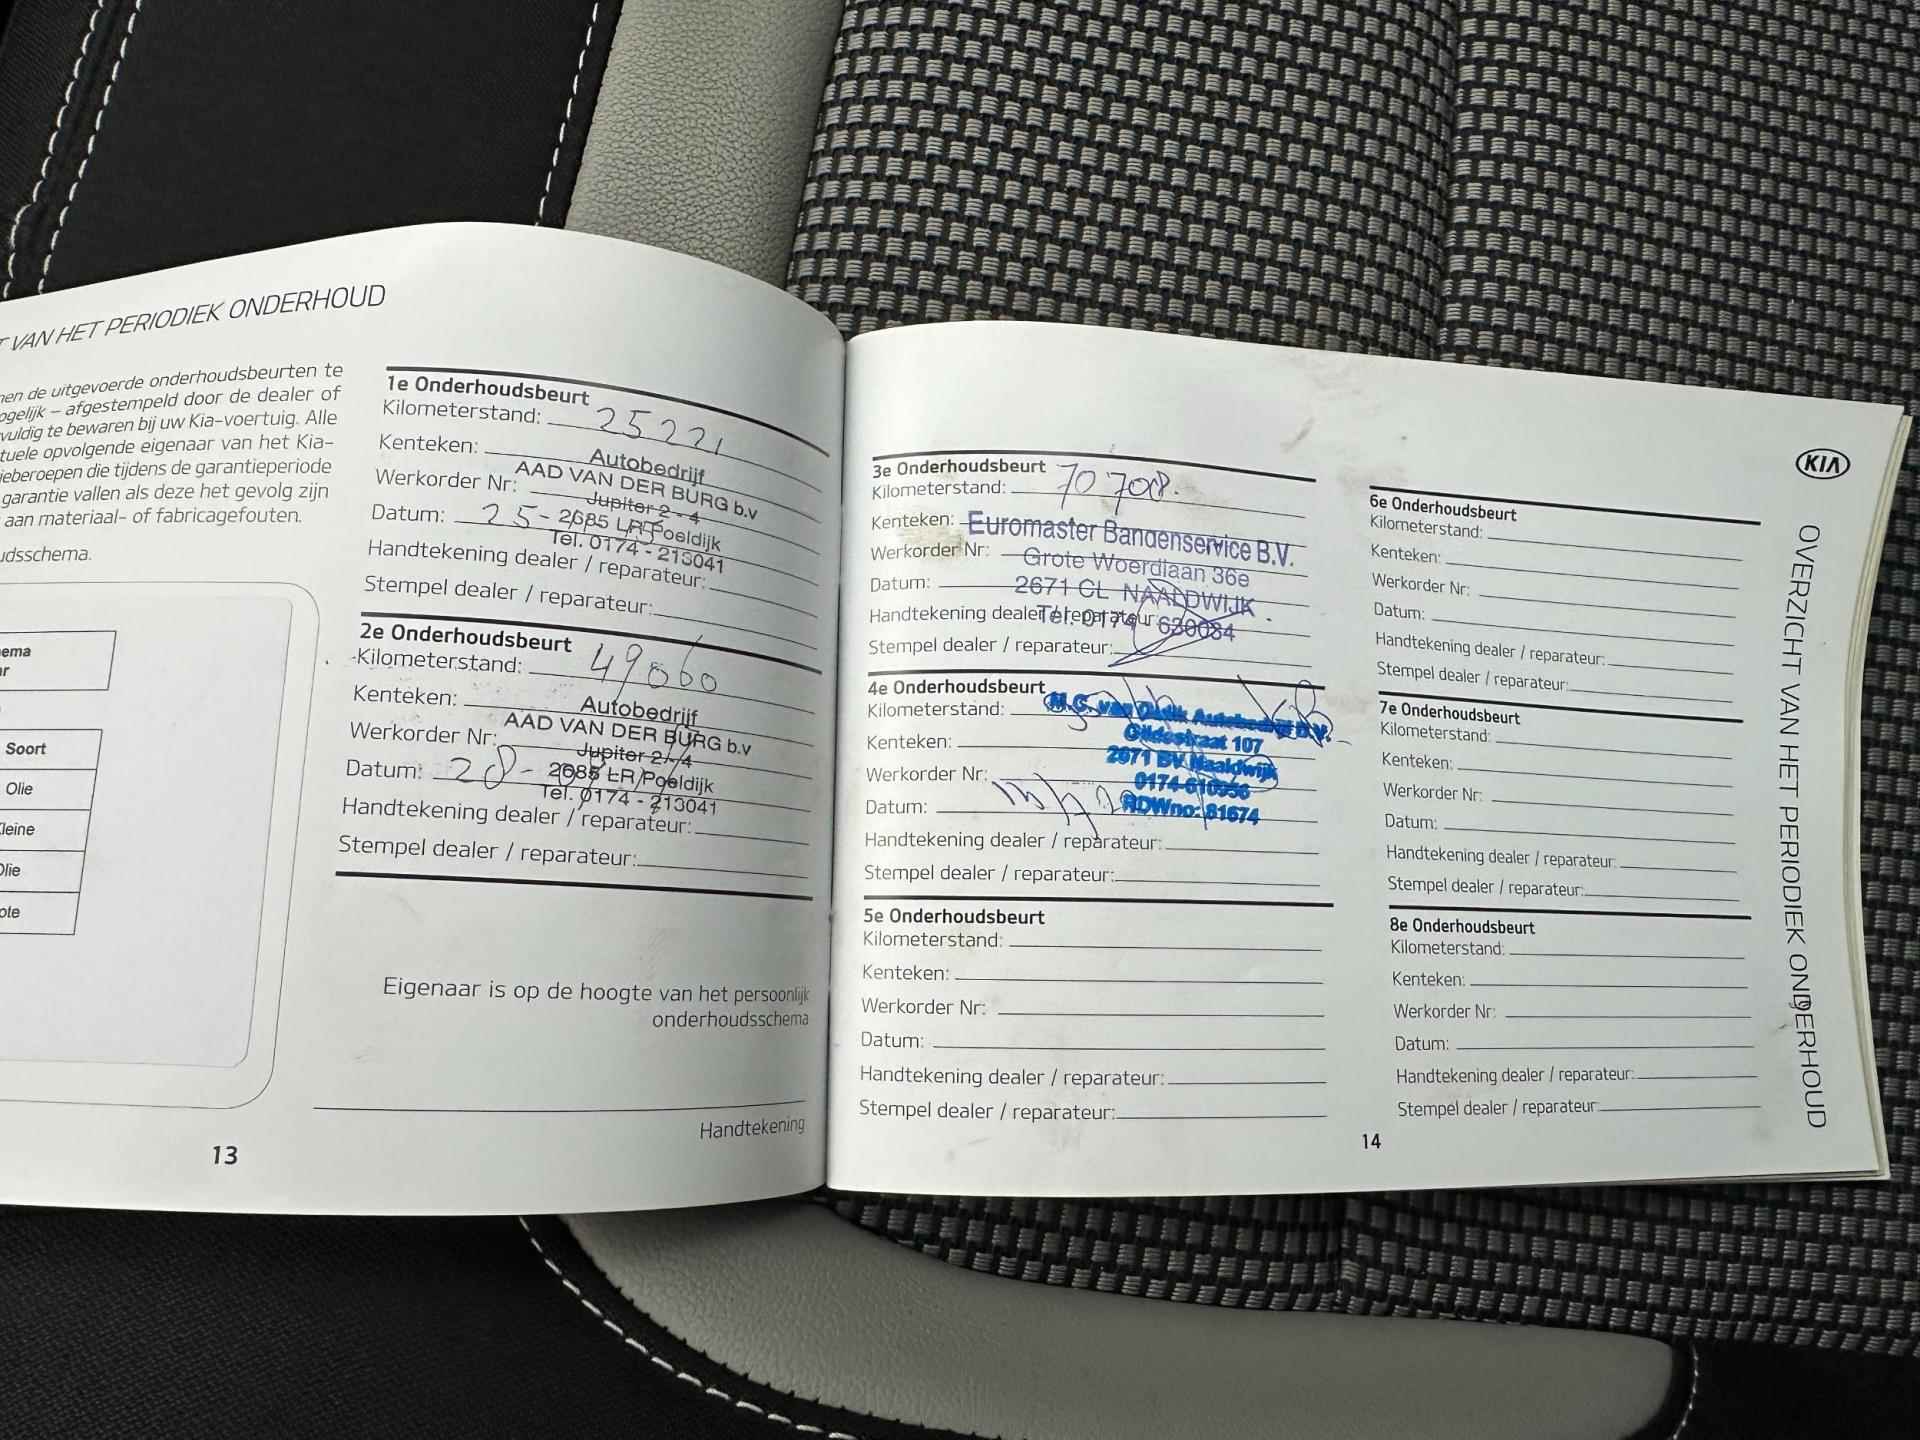 T VAN HET PERIODIEK ONDERHOUD
nen de uitgevoerde onderhoudsbeurten te
ogelijk – afgestempeld door de dealer of
vuldig te bewaren bij uw Kia-voertuig. Alle
tuele opvolgende eigenaar van het Kia-
ieberoepen die tijdens de garantieperiode
garantie vallen als deze het gevolg zijn
aan materiaal- of fabricagefouten.
udsschema.
ema
ar
Soort
Olie
Kleine
Olie
ote
1e Onderhoudsbeurt
Kilometerstand: 25221
Kenteken:
Autobedrijf
AAD VAN DER BURG b.v
Werkorder Nr:
Jupiter 2 - 4
2685 LR Poeldijk
Datum: 25-
Tel. 0174 - 213041
Handtekening dealer / reparateur:
Stempel dealer / reparateur:
2e Onderhoudsbeurt
Kilometerstand: 49060
Kenteken:
Autobedrijf
AAD VAN DER BURG b.v
Werkorder Nr:
Jupiter 2 - 4
2685 LR Poeldijk
Datum: 28-
Tel. 0174 - 213041
Handtekening dealer / reparateur:
Stempel dealer / reparateur:
Eigenaar is op de hoogte van het persoonlijk
onderhoudsschema
Handtekening
13
3e Onderhoudsbeurt
Kilometerstand: 70708.
Kenteken:
Euromaster Bandenservice B.V.
Werkorder Nr:
Grote Woerdlaan 36e
Datum:
2671 CL NAALDWIJK
Handtekening dealer / reparateur:
Tel. 0174 - 630084
Stempel dealer / reparateur:
4e Onderhoudsbeurt
Kilometerstand:
M.G. van Autobedrijf B.V.
Gildestraat 107
Kenteken:
2671 BV Naaldwijk
Werkorder Nr:
0174-610956
Datum:
RDWno: 81674
Handtekening dealer / reparateur:
Stempel dealer / reparateur:
5e Onderhoudsbeurt
Kilometerstand:
Kenteken:
Werkorder Nr:
Datum:
Handtekening dealer / reparateur:
Stempel dealer / reparateur:
6e Onderhoudsbeurt
Kilometerstand:
Kenteken:
Werkorder Nr:
Datum:
Handtekening dealer / reparateur:
Stempel dealer / reparateur:
7e Onderhoudsbeurt
Kilometerstand:
Kenteken:
Werkorder Nr:
Datum:
Handtekening dealer / reparateur:
Stempel dealer / reparateur:
8e Onderhoudsbeurt
Kilometerstand:
Kenteken:
Werkorder Nr:
Datum:
Handtekening dealer / reparateur:
Stempel dealer / reparateur:
14
KIA
OVERZICHT VAN HET PERIODIEK ONDERHOUD